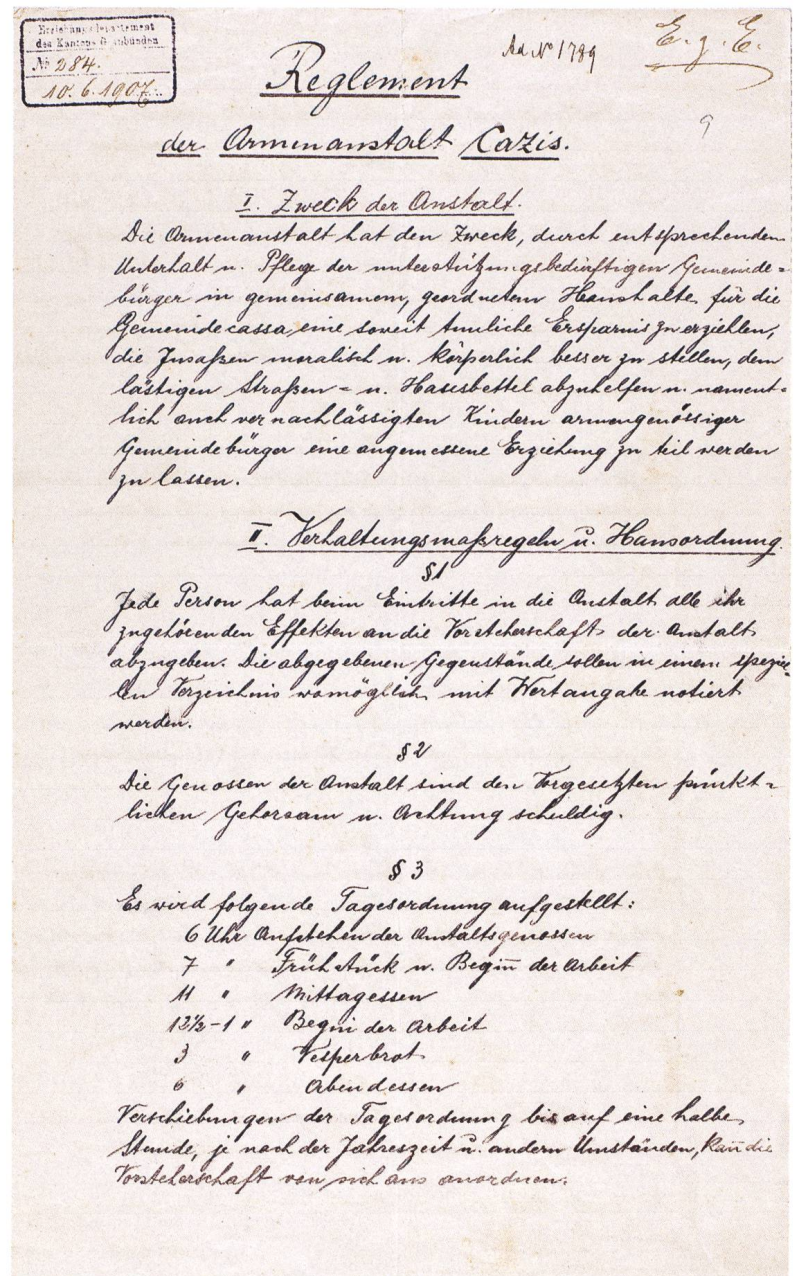 Erziehungsdepartement
des Kantons Graubünden
№ 284.
10. 6. 1907.
Ad. No 1789
E. z. E.
9
Reglement
der Armenanstalt Cazis.
I. Zweck der Anstalt.
Die Armenanstalt hat den Zweck, durch entsprechenden
Unterhalt u. Pflege der unterstützungsbedürftigen Gemeinde=
bürger in gemeinsamem, geordnetem Haushalte für die
Gemeindecassa eine soweit tunliche Ersparnis zu erziehlen,
die Insaßen moralisch u. körperlich besser zu stellen, dem
lästigen Straßen= u. Hausbettel abzuhelfen u. nament=
lich auch vernachlässigten Kindern armengenössiger
Gemeindebürger eine angemessene Erziehung zu teil werden
zu lassen.
II. Verhaltungsmaßregeln u. Hausordnung.
§1
Jede Person hat beim Eintritte in die Anstalt alle ihr
zugehörenden Effekten an die Vorsteherschaft der Anstalt
abzugeben. Die abgegebenen Gegenstände sollen in einem spezie=
llen Verzeichnis womöglich mit Wertangabe notiert
werden.
§2
Die Genossen der Anstalt sind den Vorgesetzten pünkt=
lichen Gehorsam u. Achtung schuldig.
§ 3
Es wird folgende Tagesordnung aufgestellt:
6 Uhr Aufstehen der Anstaltsgenossen
7 " Frühstück u. Begiñ der Arbeit
11 " Mittagessen
12½-1 " Begiñ der Arbeit
3 " Vesperbrot
6 " Abendessen
Verschiebungen der Tagesordnung bis auf eine halbe
Stunde, je nach der Jahreszeit u. andern Umständen, kañ die
Vorsteherschaft von sich aus anordnen.